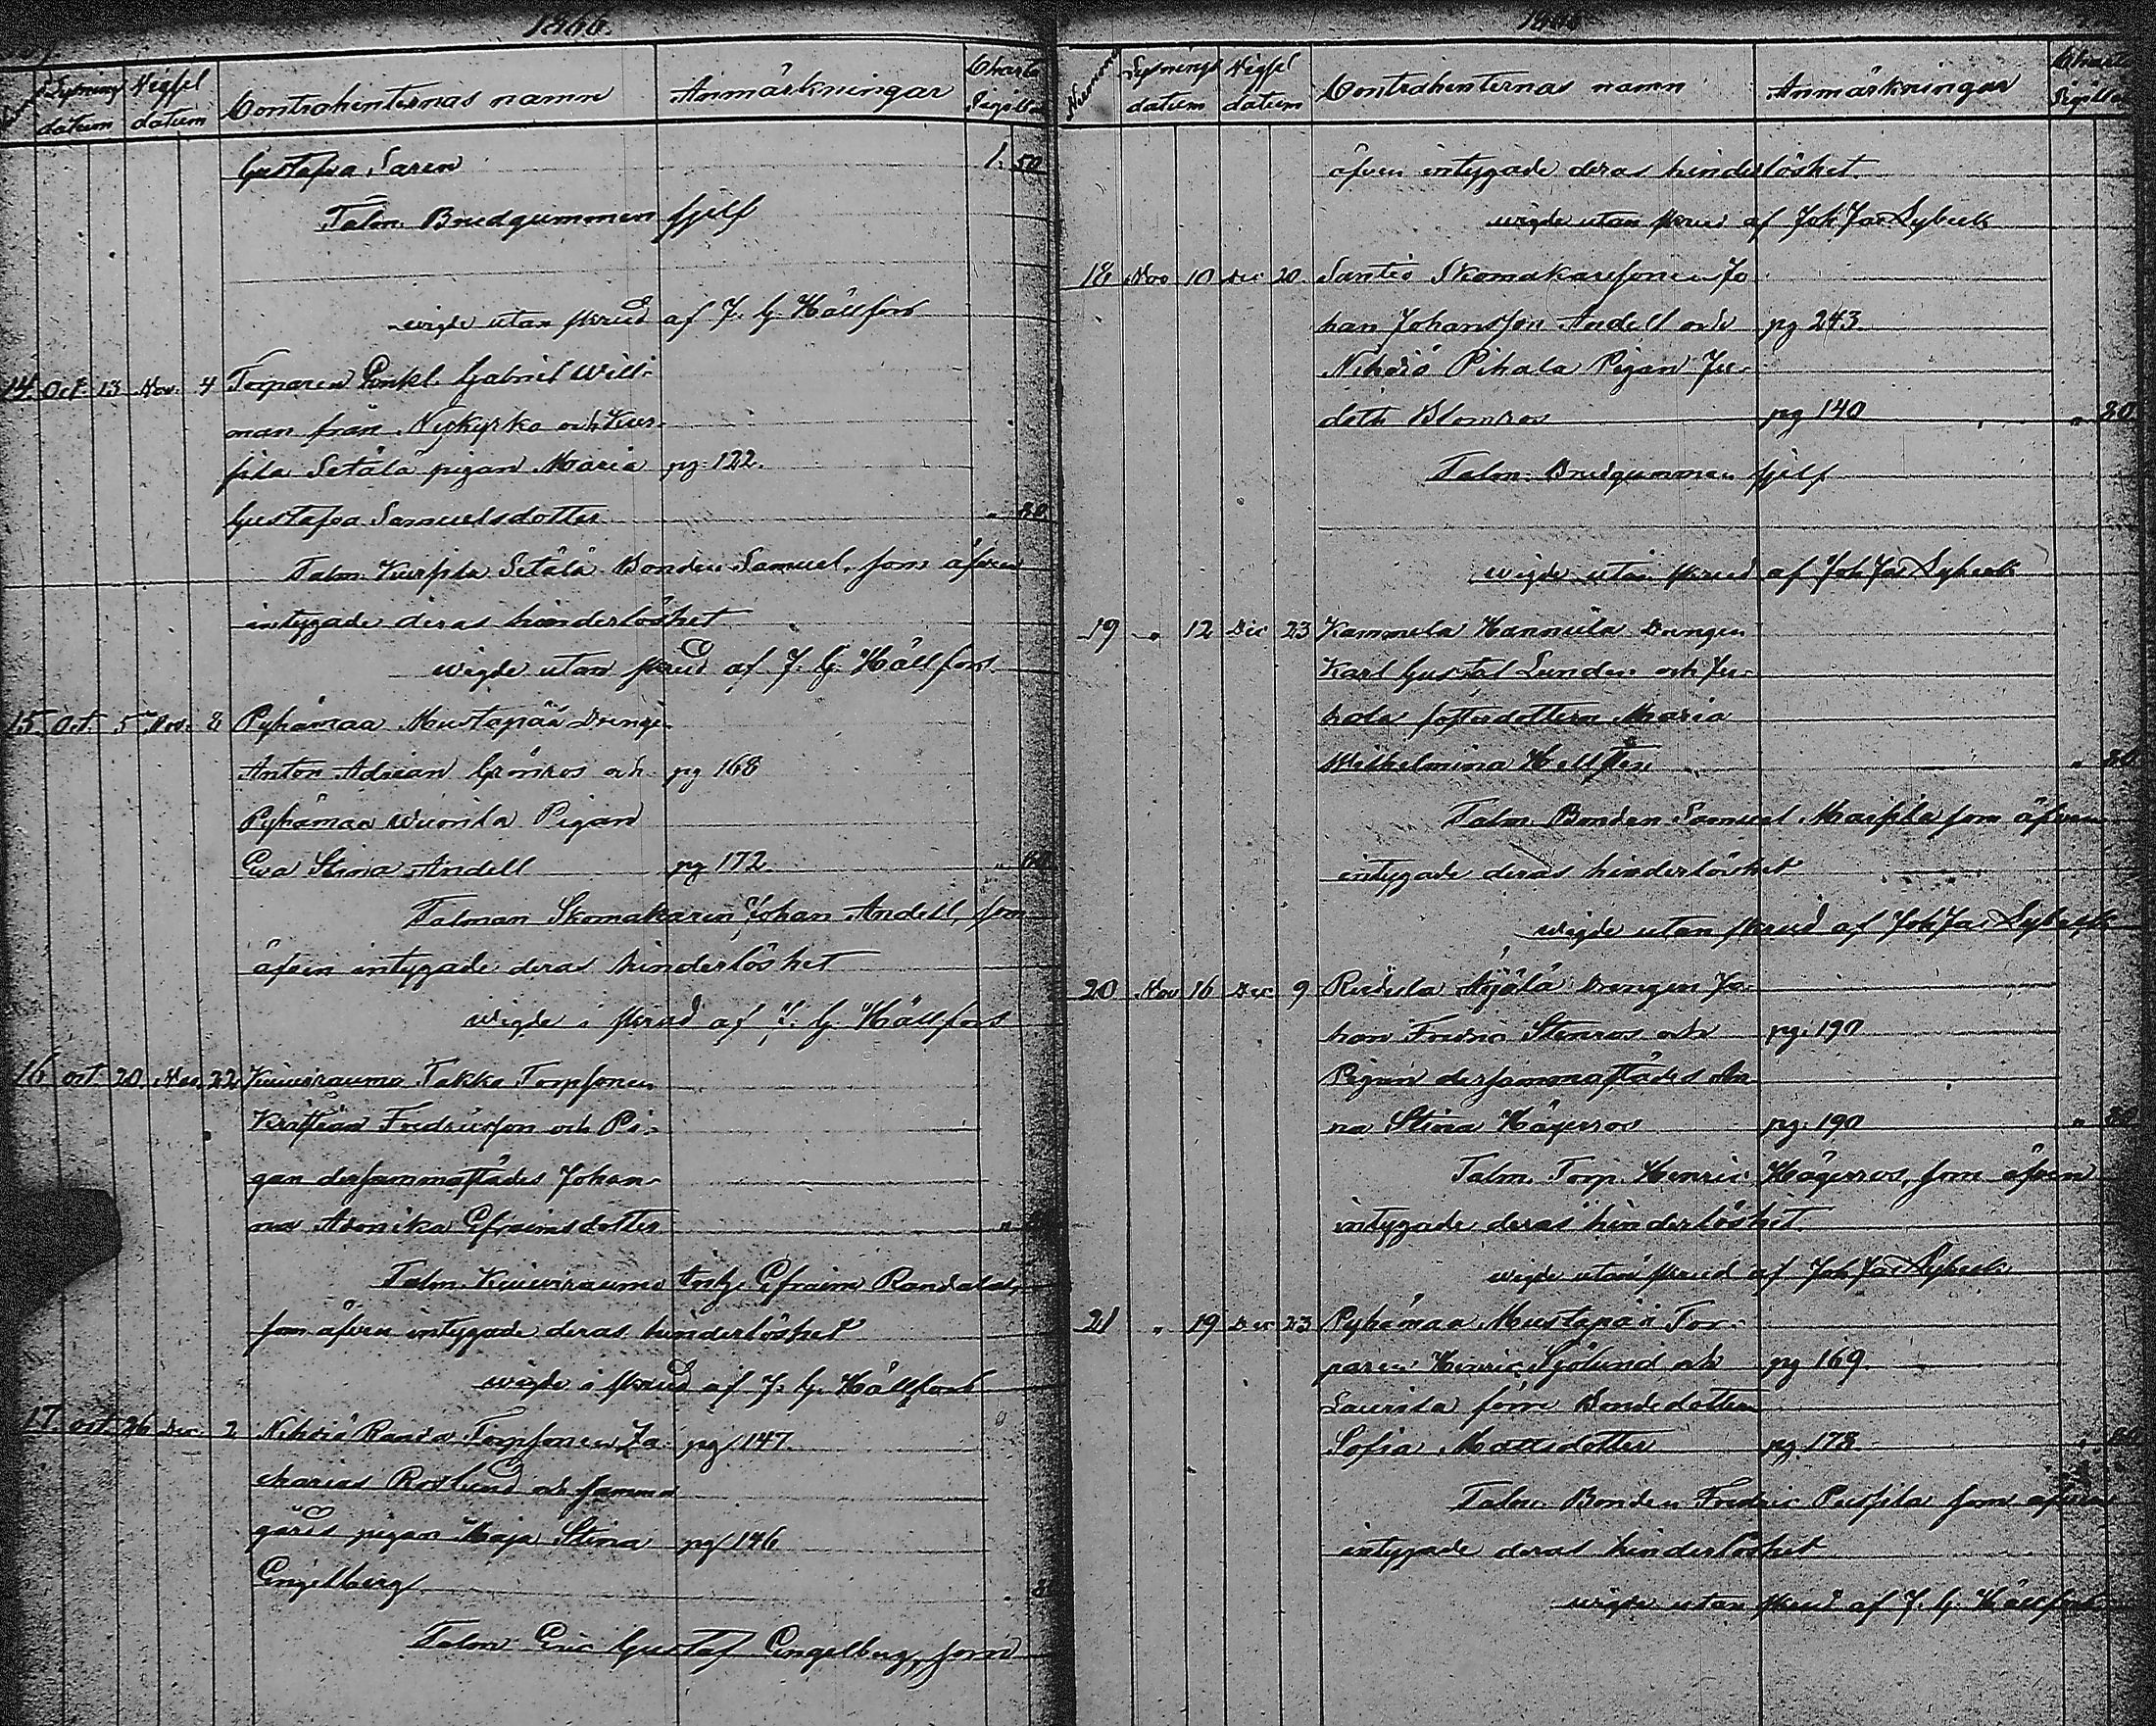 1866.
Lysning Vigsel Contrahenternas namn Anmärkningar Charta
datum datum Sigill
Gustafva Saren 1. 50
Talm. Brudgummen sjelf
vigde utan skrud af J. G. Hällfors
14. Oct. 13. Nov. 4 Torparen Enkl. Gabriel Will-
man från Nykyrko och Kur-
sila Setälä pigan Maria pg. 122.
Gustafva Samuelsdotter „ 80
Talm. Kursila Setälä Bonden Samuel, som äfven
intygade deras hinderlöshet
vigde utan skrud af J. G. Hällfors
15. Oct. 5 Nov. 8 Pyhämaa Mustapää Dräng.
Anton Adrian Grönros och pg 168
Pyhämaa Wuorila Pigan
Eva Stina Andell pg 172. „ 80
Talman Skomakaren Johan Andell, som
äfven intygade deras hinderlöshet
vigde i skrud af J. G. Hällfors
16 oct. 20 Nov. 22 Kuivirauma Takka Torpsonen
Kristian Fredricsson och Pi-
gan dersammastädes Johan-
na Adonika Efraimsdotter „
Talm. Kuivirauma Efraim Randala,
som äfven intygade deras hinderlöshet
vigde i skrud af J. G. Hällfors
17. oct. 26 Dec. 2 Nihdiö Torpsonen Za- pg 147.
charias Roslund och samma
gårds pigan Maja Stina pg 146
Engelberg
Talm. Eric Gustaf Engelberg, som
Numero Lysnings Vigsel Contrahenternas namn Anmärkningar Charta
datum datum Sigill
äfven intygade deras hinderlöshet.
vigde utan skrud af Joh Jac Lybeck
18 Nov 10 Dec 20. Santio Skomakaresonen Jo
han Johansson Andell och pg 243
Nihdiö Pihala Pigan Ju-
dith Blomros pg 140 „ 80
Talm. Brudgummen sjelf
vigde utan skrud af Joh Jac Lybeck
19 „ 12 Dec 23 Kammela Hannula Drengen
Karl Gustaf Lunden och Ju-
hola fosterdottern Maria
Wilhelmina Hellsten „ 80
Talm. Bonden Samuel Marsila som äfven
intygade deras hinderlöshet
vigde utan skrud af Joh Jac Lybeck
20 Nov 16 Dec 9 Rudula Äijälä Drengen Jo-
han Fredric Stenros och pg. 190
Pigan dersammastädes An
na Stina Hägerros pg. 190 „ 80
Talm. Torp. Henric Hägerros, som äfven
intygade deras hinderlöshet.
vigde utan skrud af Joh Jac Lybeck
21 „ 19 Dec 23 Pyhämaa Mustapää Tor-
paren Henric Sjölund och pg 169.
Laurila förre Bondedottern
Sofia Mattsdotter pg 178
Talm. Bonden Fredric Pursila som äfven
intygade deras hinderlöshet
vigde utan skrud af J. G. Hällfors